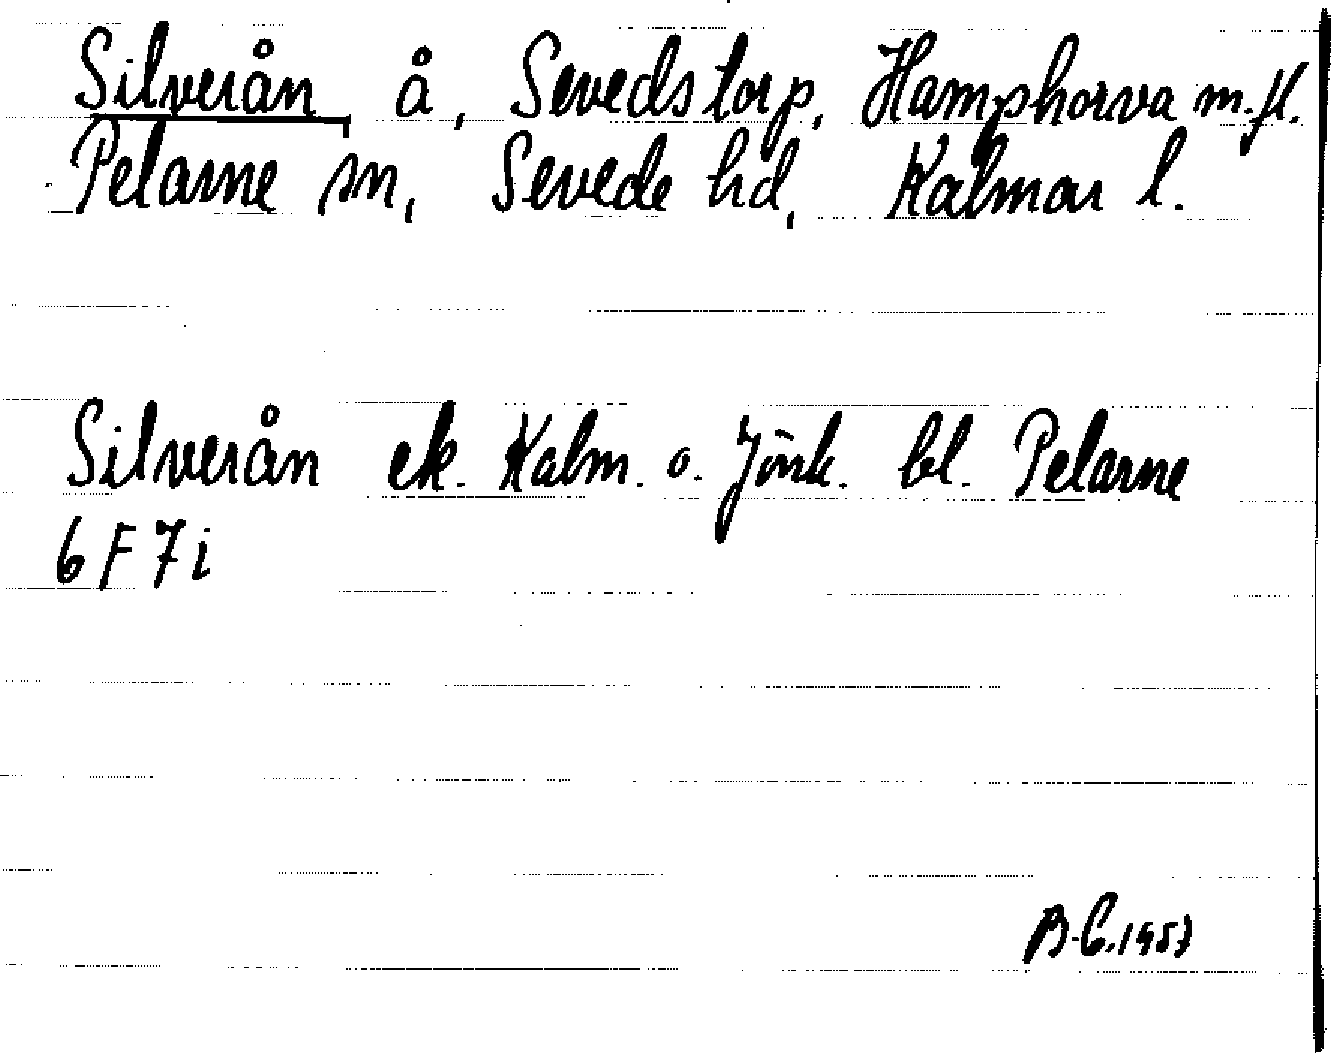 Silverån, å, Sevedstorp, Hamphorva m.fl.
Pelarne sn, Sevede hd, Kalmar l.
Silverån ek. Kalm. o. Jönk. bl. Pelarne
6 F 7 i
B.C. 1957